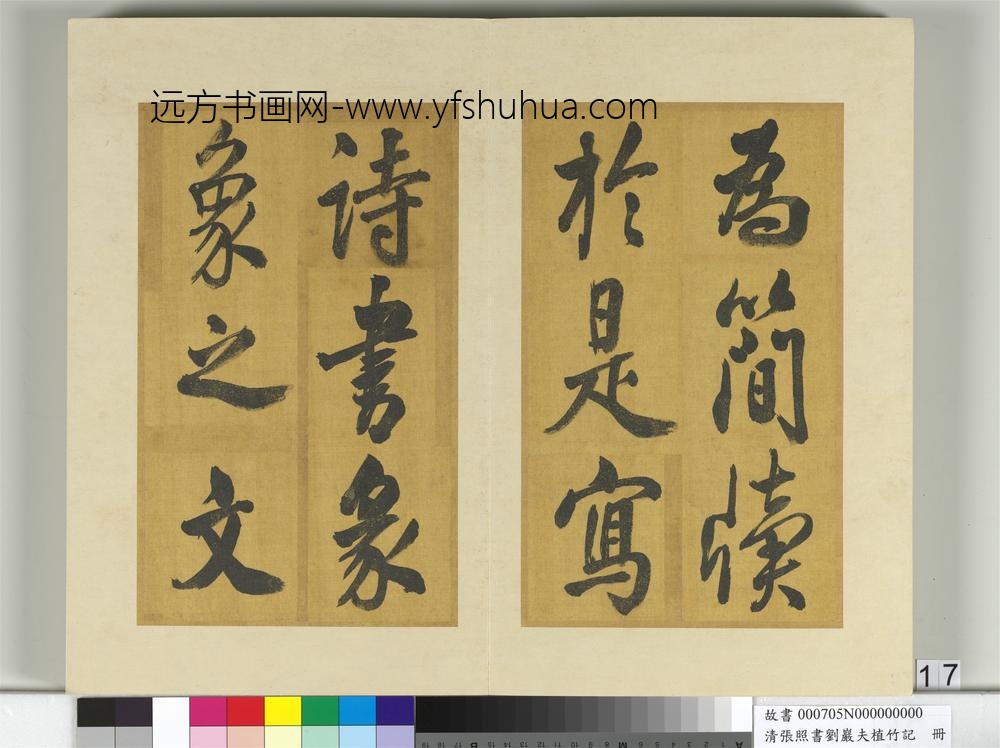 远方书画网-www.yfshuhua.com
為簡牘
於是寫
詩書彖
象之文
17
故書 000705N000000000
清張照書劉巖夫植竹記 冊